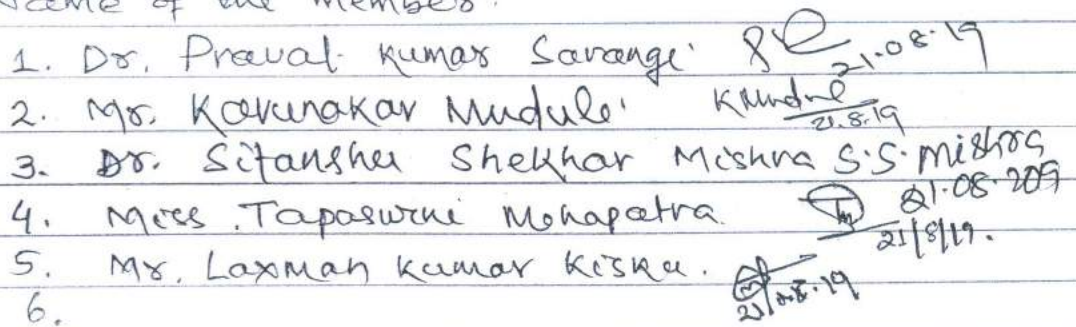 Name of the Member.
1. Dr. Praval Kumar Sarangi 21.08.19
2. Mr. Karunakar Muduli K Muduli 21.8.19
3. Dr. Sitanshu Shekhar Mishra S.S. Mishra 21.08.209
4. Miss. Tapaswini Mohapatra 21/8/19.
5. Mr. Laxman Kumar Kisku. 21.8.19
6.